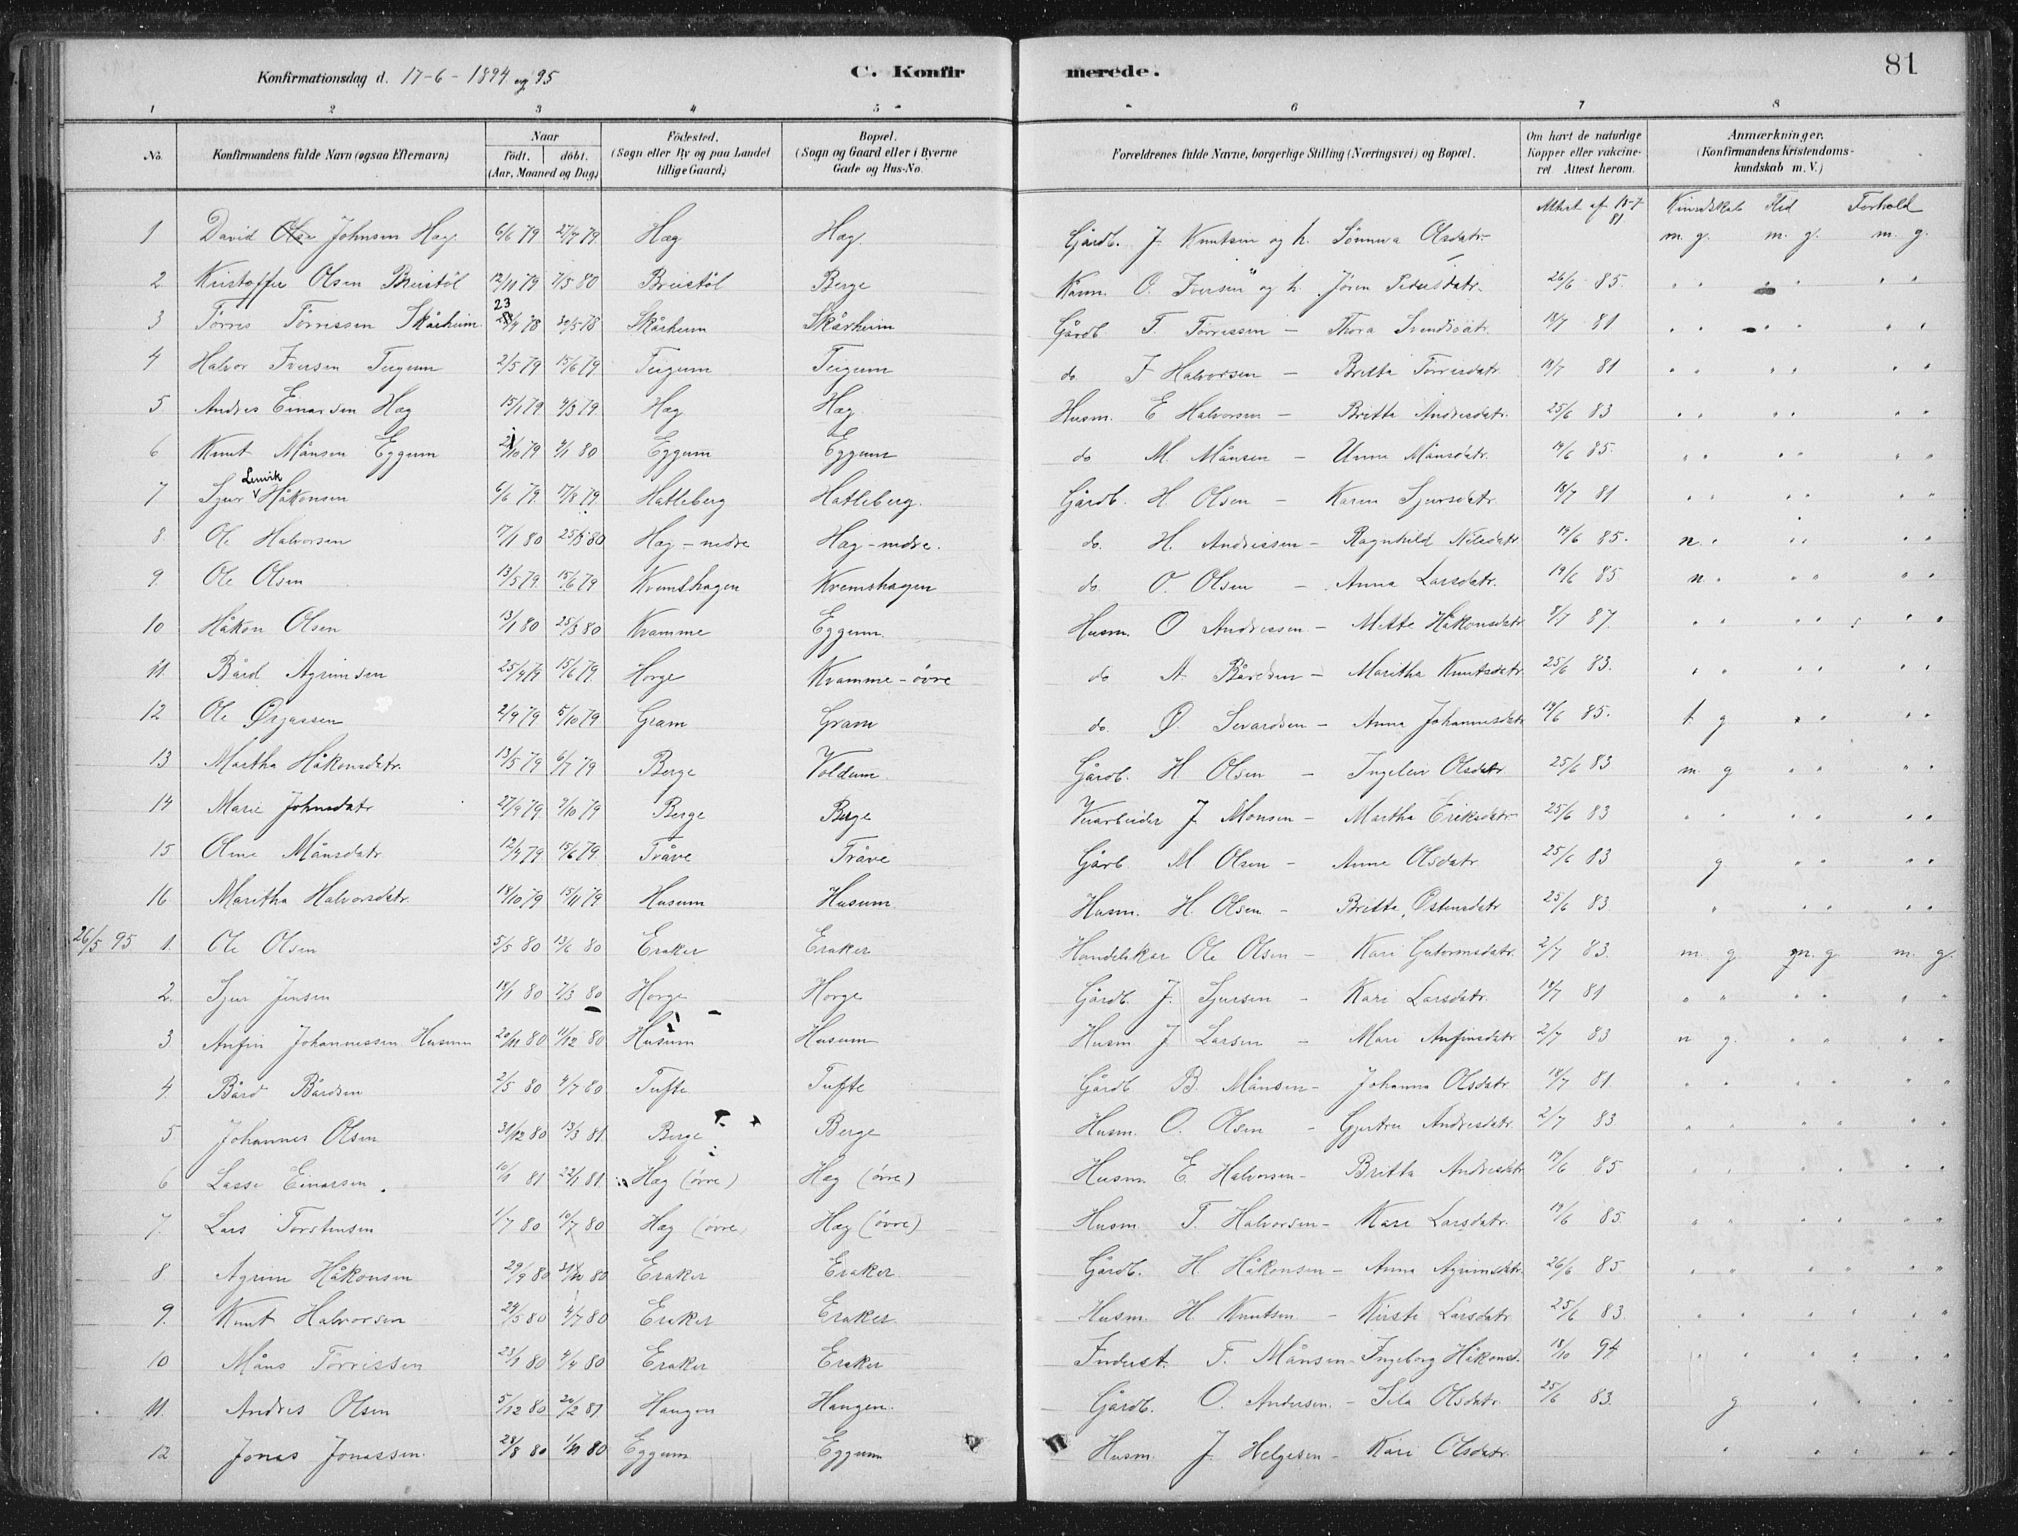 Konfirmationsdag d. 17-6-1894 og 95 C. Konfirmerede. 81
1 2 3 4 5 6 7 8
No. Konfirmandens fulde Navn (ogsaa Efternavn) Naar født. døbt. (Aar, Maaned og Dag) Födested. (Sogn eller By og paa Landet tillige Gaard) Bopæl. (Sogn og Gaard eller i Byerne Gade og Hus-No. Forældrenes fulde Navne, borgerlige Stilling (Næringsvei) og Bopæl. Om havt de naturlige Kopper eller vakcineret. Attest herom. Anmærkninger. (Konfirmandens Kristendomskundskab m. V.)
Attest af Kundskab Flid Forhold
1 David Johnsen Hæg 6/6 79 27/7 79 Hæg Hæg Gårdb. J. Knutsen og h. Sönneva Olsdatr 18-7 81 m. g. m. g. m. g.
2 Kristoffer Olsen Breistöl 12/11 79 2/5 80 Breistöl Berge O. Iversen og h. Jören Pedersdatr. 26/6 85.
3 Törris Törrissen Skårheim 23/4 78 Skårheim Skårheim Gårdb. T. Törrissen - Thora Svendsdatr. 18/7 81
4 Halvor Iversen Teigum 2/5 79 15/6 79 Teigum Teigum do. I Halvorsen - Britta Törrisdatr. 18/7 81
5 Andres Einarsen Hæg 15/1 79 2/3 79 Hæg Hæg Husm. E Halvorsen - Britta Andresdatr. 25/6 83
6 Knut Månsen Eggum 4/1 80 Eggum Eggum do M. Månsen - Unna Månsdatr. 19/6 85.
7 Sjur Lenvik Håkonsen 6/6 79. 17/8 79. Hatleberg Hatleberg. Gårdb. H. Olsen - Karen Sjursdatr. 18/7 81
8. Ole Halvorsen 17/1 80 25/3 80 Hæg - nedre Hæg - nedre. do. H. Andressen - Ragnhild Nilsdatr 19/6 85. n.
9 Ole Olsen 13/5 79. 15/6 79 Kvemshagen Kvemshagen do. O. Olsen - Anna Larsdatr. 19/6 85 n.
10 Håkon Olsen 13/1 80 25/3 80 Kvamme Eggum. Husm. O Andressen - Mette Håkonsdatr 8/7 87.
11. Bård Agrimsen 25/4 79 15/6 79. Horge Kvamme - övre do A. Bårdsen - Maritha Knutsdatr 25/6 83.
12 Ole Ørjassen 2/9 79. 5/10 79 Gram Gram do. Ø. Sevardsen - Anna Johannesdatr 19/6 85. t. g
13 Martha Håkonsdatr. 13/5 79 6/7 79 Berge Voldum. Gårdb. H Olsen - Ingeleiv Olsdatr 25/6 83 m. g
14 Marie Johnsdatr 27/9 79. 9/10 79 Berge Berge Veiarbeider J. Monsen - Martha Eriksdatr 25/6 83
15 Oline Månsdatr 12/4 79 15/6 79. Tråve Tråve Gårb. M Olsen - Anne Olsdatr 25/6 83 g
16 Maritha Halvorsdatr. 18/10 79 15/11 79 Husum Husum. Husm. H. Olsen - Britta Östensdatr 25/6 83.
26/5 95 1. Ole Olsen 5/5 80 13/6 80 Eraker Eraker Handelskar Ole Olsen - Kari Gutormsdatr. 2/7 83. m. g m. g. m. g.
2. Sjur Jensen 18/1 80 7/3 80 Horge Horge Gårdb. J. Sjursen - Kari Larsdatr. 18/7 81
3 Anfin Johannessen Husum 20/11 80 11/12 80 Husum Husum Husm J. Larsen - Mari Anfinsdatr. 2/7 83 n g.
4. Bård Bårdsen 2/5 80 4/7 80 Tufte Tufte Gårdb B. Månsen - Johanna Olsdatr. 18/7 81.
5 Johannes Olsen 31/12 80 13/3 81. Berge Berge Husm. O. Olsen - Gjertru Andresdatr. 2/7 83.
6 Lasse Einarsen 10/1 81 22/1 81 Hæg (övre) Hæg (övre) Husm. E. Halvorsen - Britta Andresdatr 19/6 85
7. Lars Torstensen 1/7 80 10/7 80 Hæg (övre) Hæg (övre) Husm T. Halvorsen - Kari Larsdatr. 19/6 85.
8 Agrim Håkonsen 29/9 80 80 Eraker Eraker. Gårdb. H Håkonsen - Anna Agrimsdatr. 26/6 85.
9. Knut Halvorsen 24/5 80 4/7 80 Eraker Eraker. Husm. H. Knutsen - Kirsti Larsdatr. 25/6 83
10 Måns Törrissen 23/1 80 4/4 80 Eraker Eraker Inderst. T. Månsen - Ingeborg Håkonsd. 18/10 94
11. Andres Olsen 5/12 80 20/2 81 Haugen Haugen. Gårdb. O. Andersen. - Sila Olsdatr. 25/6 83. g
12 Jonas Jonassen 28/8 80 1/11 80 Eggum Eggum Husm. J Helgesen - Kari Olsdatr.